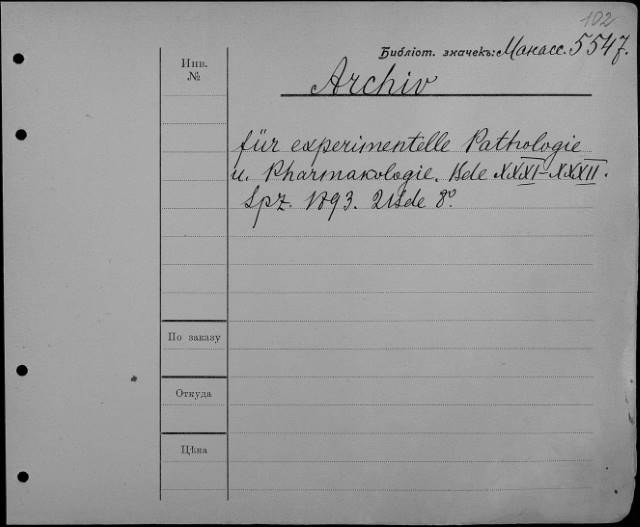 102
Библіот. значекъ: Манасс. 5547.
Инв.
№
Archiv
für experimentelle Pathologie
u. Pharmakologie. Bde XXXI-XXXII.
Lpz. 1893. 2 Bde 8°.
По заказу
Откуда
Цѣна